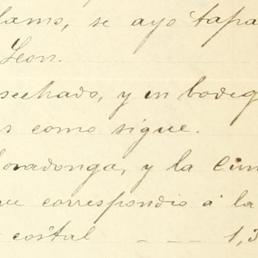 lams, se ayo tapa
Leon.
sechado, y en bodeg
s como sigue.
oradonga, y la Cun
ue correspondio á la
costal - - - 1,3